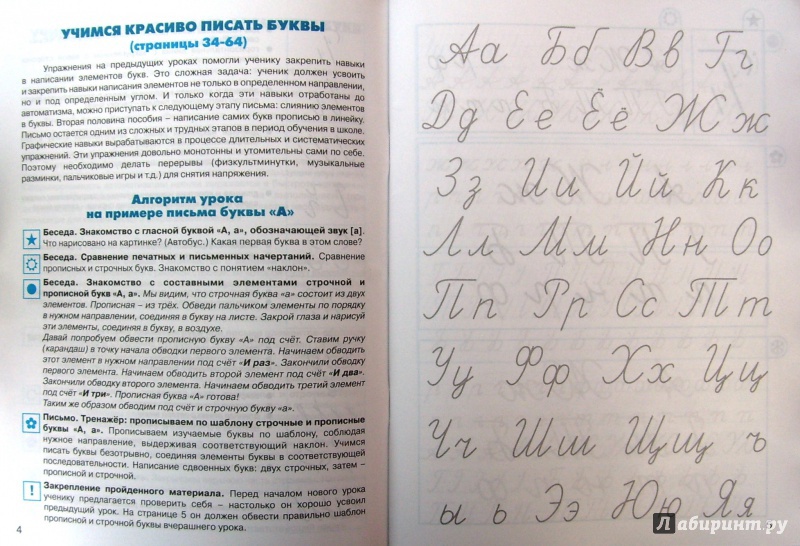 УЧИМСЯ КРАСИВО ПИСАТЬ БУКВЫ
(страницы 34-64)
Упражнения на предыдущих уроках помогли ученику закрепить навыки
в написании элементов букв. Это сложная задача: ученик должен усвоить
и закрепить навыки написания элементов не только в определенном направлении,
но и под определенным углом. И только когда эти навыки отработаны до
автоматизма, можно приступать к следующему этапу письма: слиянию элементов
в буквы. Вторая половина пособия – написание самих букв прописью в линейку.
Письмо остается одним из сложных и трудных этапов в период обучения в школе.
Графические навыки вырабатываются в процессе длительных и систематических
упражнений. Эти упражнения довольно монотонны и утомительны сами по себе.
Поэтому необходимо делать перерывы (физкультминутки, музыкальные
разминки, пальчиковые игры и т.д.) для снятия напряжения.
Алгоритм урока
на примере письма буквы «А»
Беседа. Знакомство с гласной буквой «А, а», обозначающей звук [а].
Что нарисовано на картинке? (Автобус.) Какая первая буква в этом слове?
Беседа. Сравнение печатных и письменных начертаний. Сравнение
прописных и строчных букв. Знакомство с понятием «наклон».
Беседа. Знакомство с составными элементами строчной и
прописной букв «А, а». Мы видим, что строчная буква «а» состоит из двух
элементов. Прописная – из трёх. Обведи пальчиком элементы по порядку
в нужном направлении, соединяя в букву на листе. Закрой глаза и нарисуй
эти элементы, соединяя в букву, в воздухе.
Давай попробуем обвести прописную букву «А» под счёт. Ставим ручку
(карандаш) в точку начала обводки первого элемента. Начинаем обводить
этот элемент в нужном направлении под счёт «И раз». Закончили обводку
первого элемента. Начинаем обводить второй элемент под счёт «И два».
Закончили обводку второго элемента. Начинаем обводить третий элемент
под счёт «И три». Прописная буква «А» готова!
Таким же образом обводим под счёт и строчную букву «а».
Письмо. Тренажёр: прописываем по шаблону строчные и прописные
буквы «А, а». Прописываем изучаемые буквы по шаблону, соблюдая
нужное направление, выдерживая соответствующий наклон. Учимся
писать буквы безотрывно, соединяя элементы буквы в соответствующей
последовательности. Написание сдвоенных букв: двух строчных, затем –
прописной и строчной.
! Закрепление пройденного материала. Перед началом нового урока
ученику предлагается проверить себя – настолько он хорошо усвоил
предыдущий урок. На странице 5 он должен обвести правильно шаблон
прописной и строчной буквы вчерашнего урока.
4
Аа Бб Вв Гг
Дд Ее Ёё Жж
Зз Ии Йй Кк
Лл Мм Нн Оо
Пп Рр Сс Тт
Уу Фф Хх Цц
Чч Шш Щщ ъ
ы ь Ээ Юю Яя
Лабиринт.ру